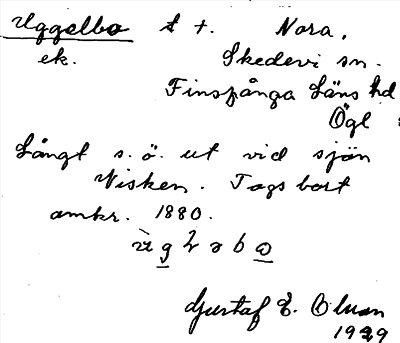 Uggelbo t t. Nora,
ek. Skedevi sn.
Finspånga Läns hd
Ögl
Långt s. ö. ut vid sjön
Nisken. Togs bort
omkr. 1880.
Gustaf E. Olsson
1929